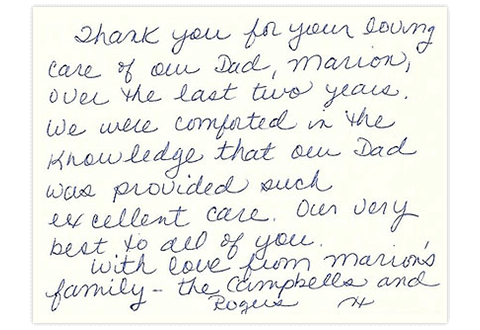 Thank you for your loving
care of our Dad, Marion,
over the last two years.
We were comforted in the
knowledge that our Dad
was provided such
excellent care. Our very
best to all of you.
With love from Marion's
family - the Campbells and
Rogers